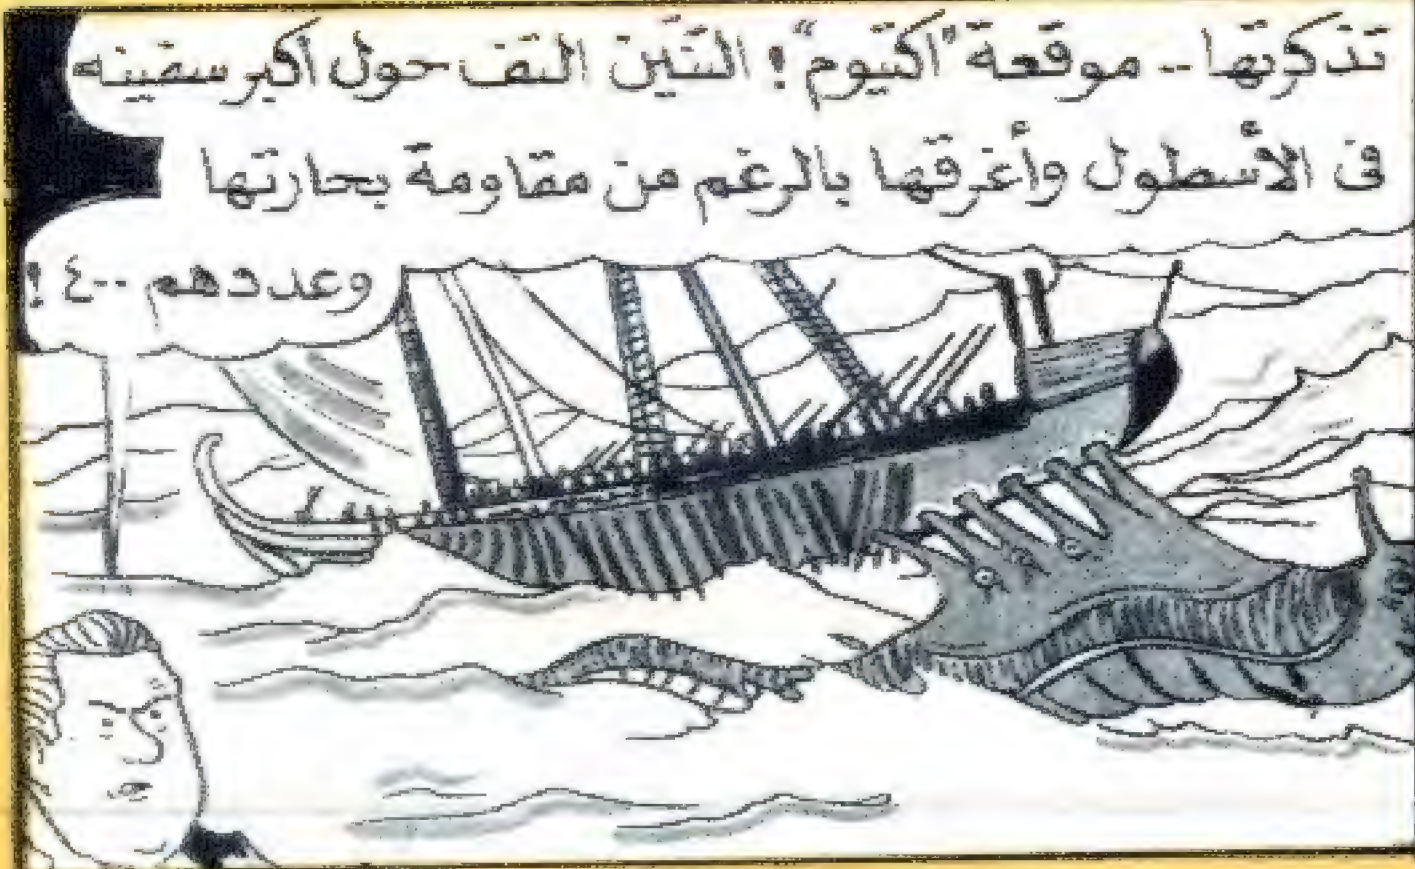 تذكرتها -- موقعة "اكتيوم"! التنين التف حول أكبر سفينه
فى الأسطول وأغرقها بالرغم من مقاومة بحارتها
وعددهم ٤٠٠!